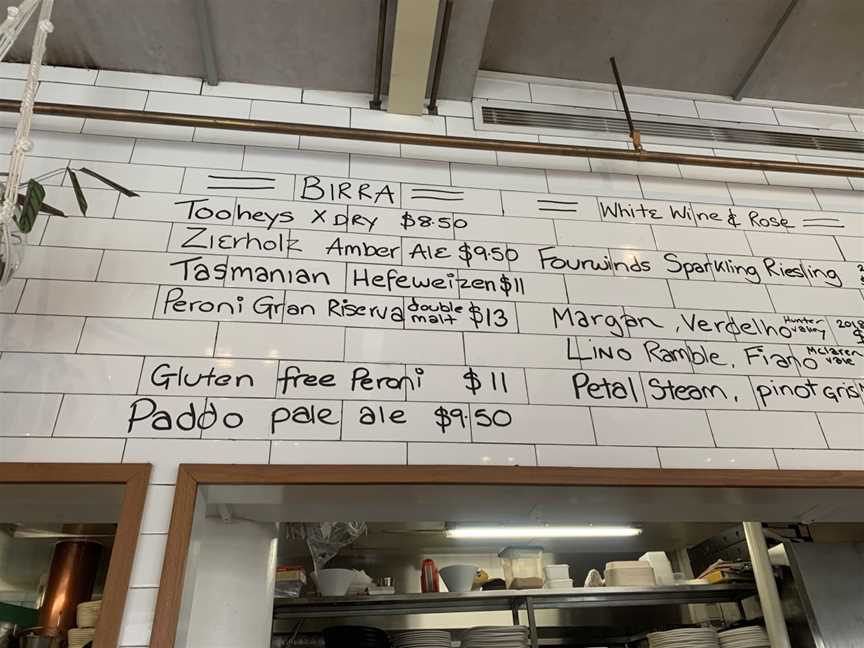 BIRRA
Tooheys X DRY $8.50
Zierholz Amber Ale $9.50
Tasmanian Hefeweizen $11
Peroni Gran Riserva double malt $13
Gluten free Peroni $11
Paddo pale ale $9.50
White Wine & Rose
Fourwinds Sparkling Riesling
Margan, Verdelho Hunter valley
Lino Ramble, Fiano Mclaren vale
Petal Steam, pinot gris